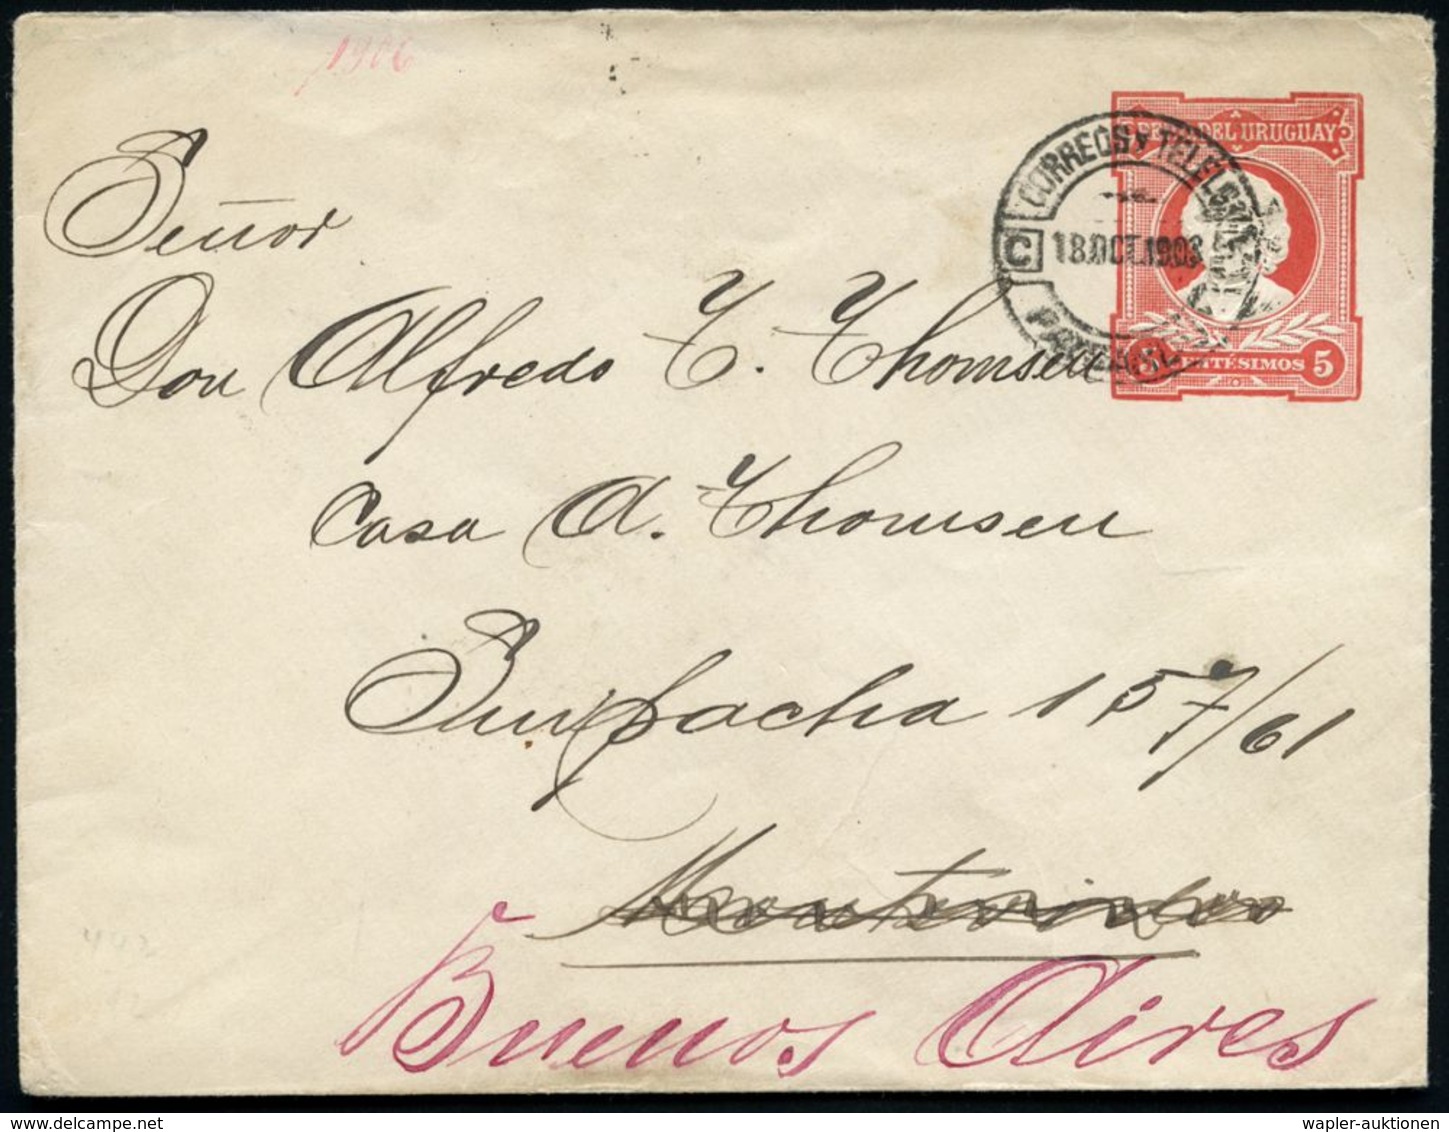 1906
REP. DEL URUGUAY
CORREOS Y TELEGR
C
18.OCT.1906
5 CENTÉSIMOS 5
Señor
Don Alfredo T. Thomsen
Casa A. Thomsen
Suipacha 157/61
Montevideo
Buenos Aires
442
wapler-auktionen